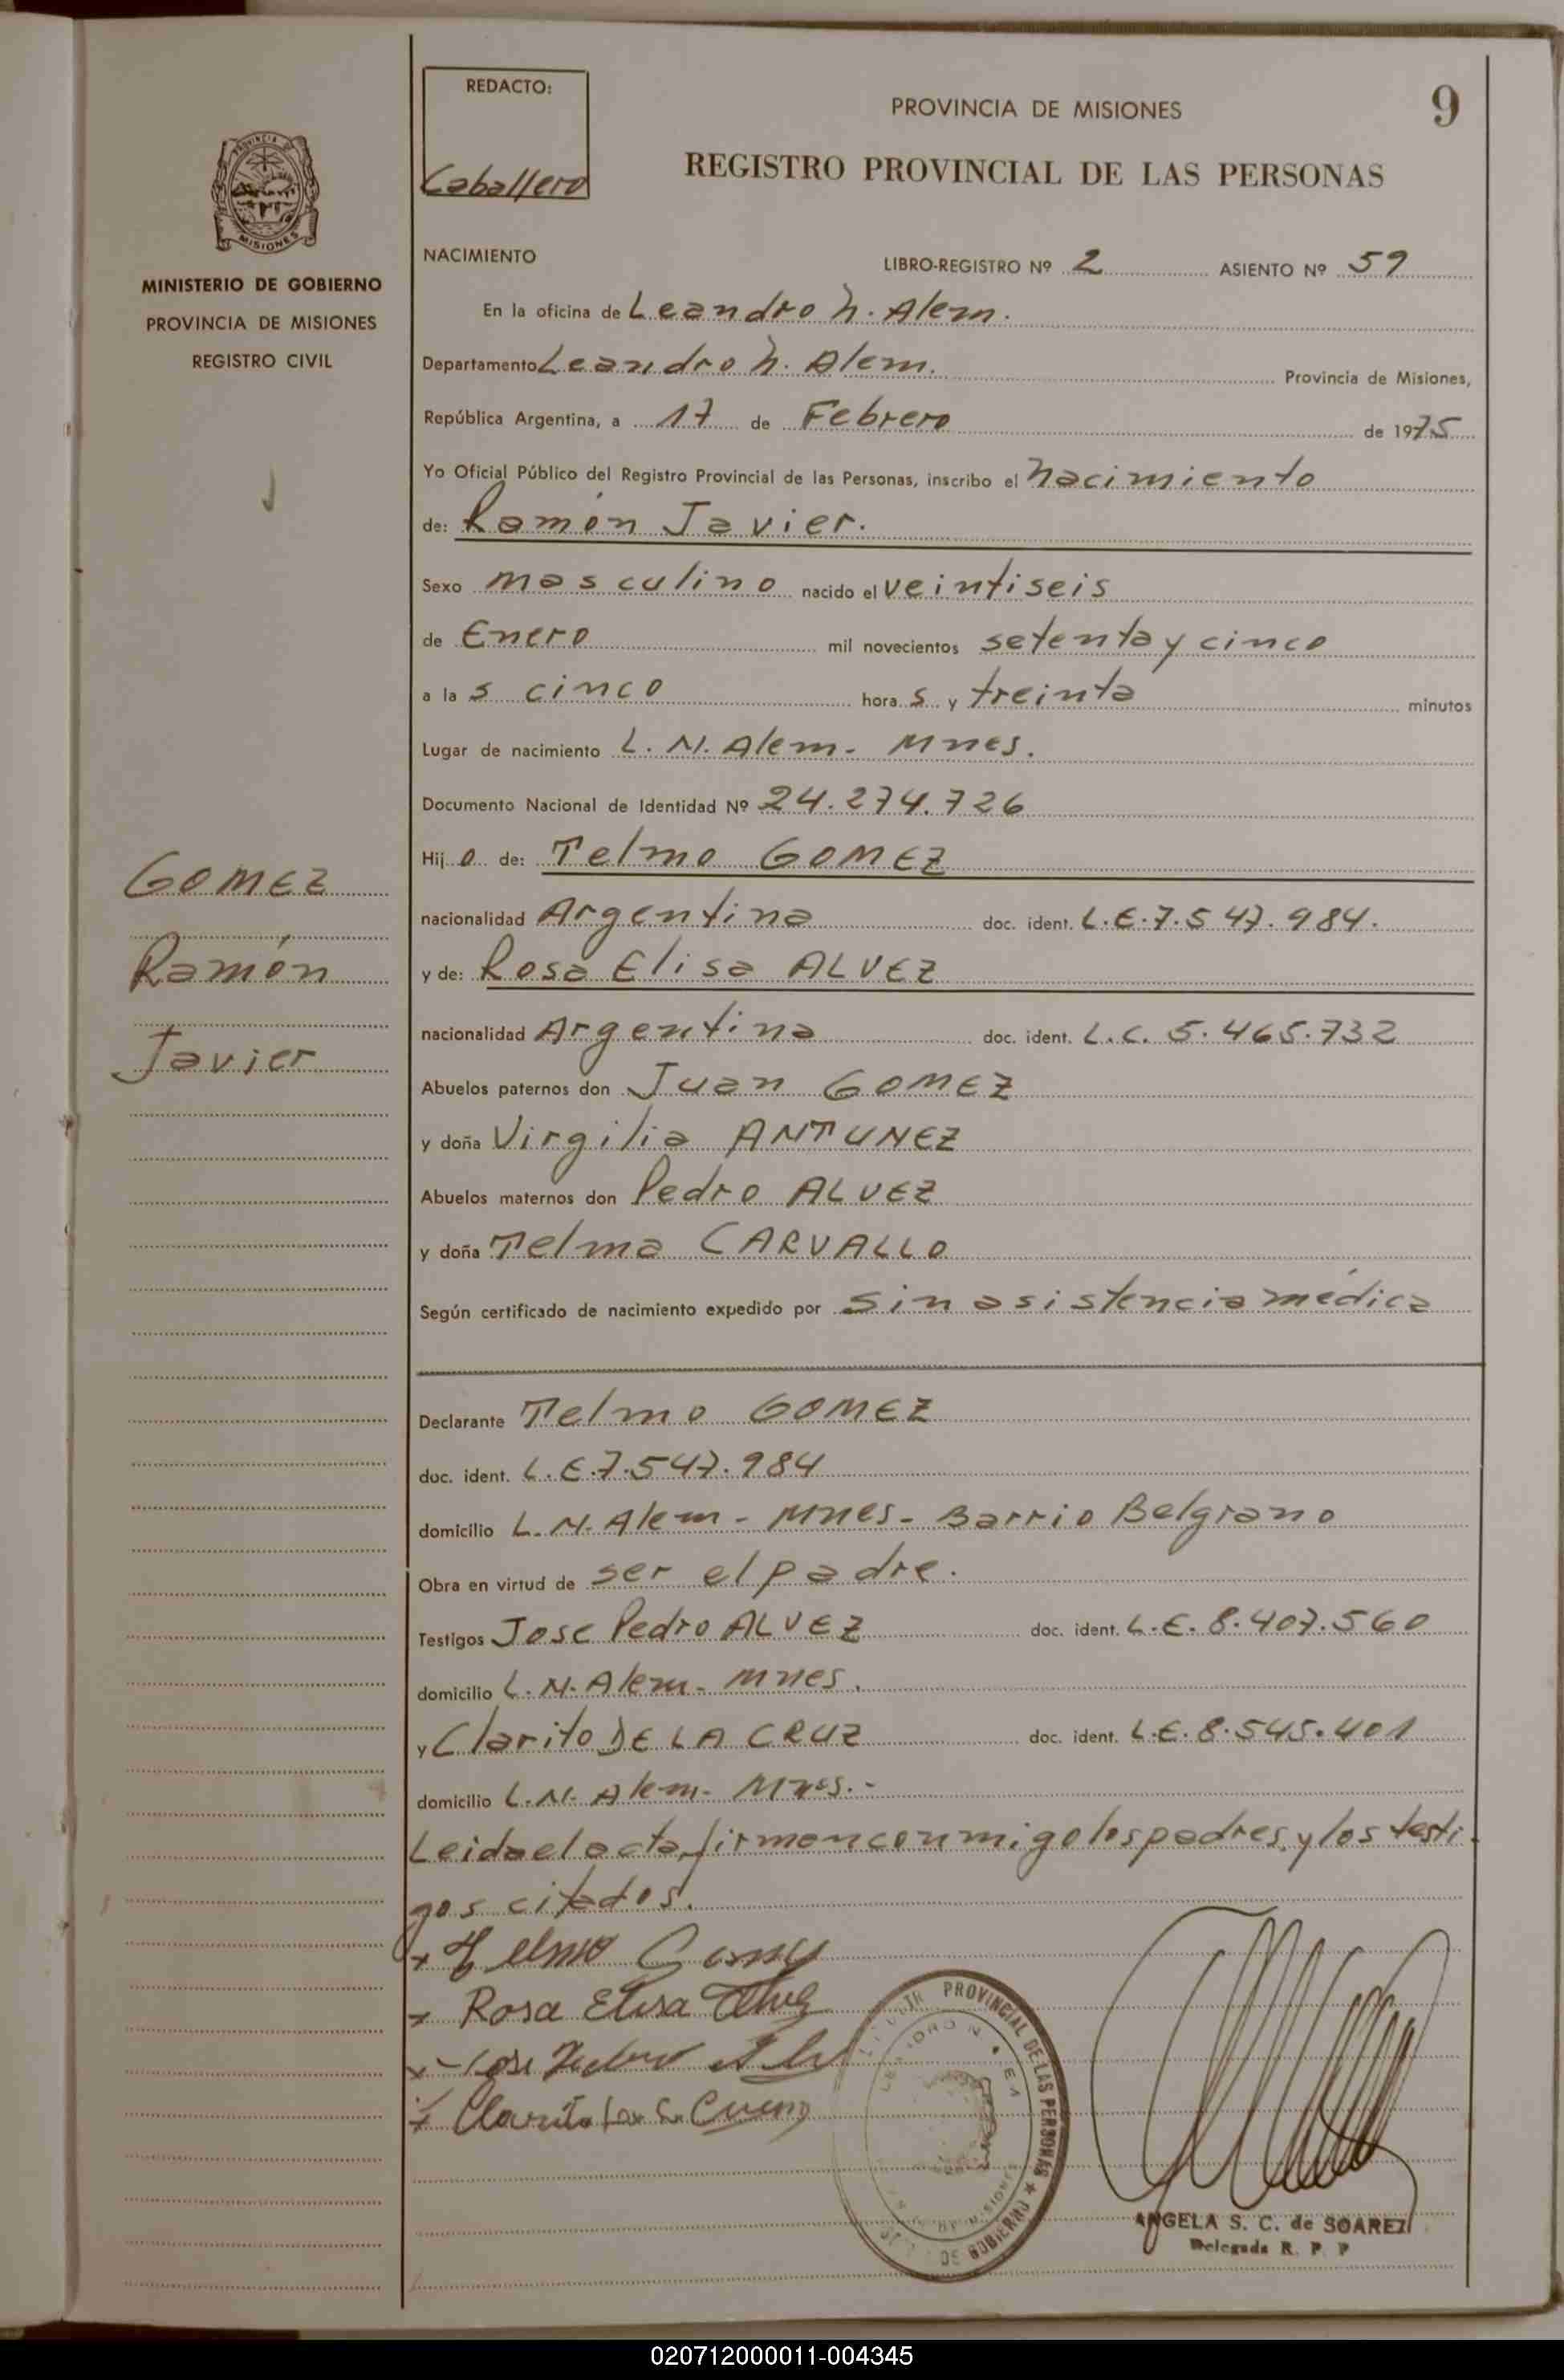 REDACTO:
Caballero
PROVINCIA DE MISIONES
9
REGISTRO PROVINCIAL DE LAS PERSONAS
PROVINCIA DE
MISIONES
MINISTERIO DE GOBIERNO
PROVINCIA DE MISIONES
REGISTRO CIVIL
NACIMIENTO LIBRO-REGISTRO Nº 2 ASIENTO Nº 59
En la oficina de Leandro N. Alem.
Departamento Leandro N. Alem. Provincia de Misiones,
República Argentina, a 17 de Febrero de 1975
Yo Oficial Público del Registro Provincial de las Personas, inscribo el nacimiento
de: Ramón Javier.
Sexo masculino nacido el veintiseis
de Enero mil novecientos setenta y cinco
a las cinco horas y treinta minutos
Lugar de nacimiento L. N. Alem - Mnes.
Documento Nacional de Identidad Nº 24.274.726
Hijo de: Telmo GOMEZ
nacionalidad Argentina doc. ident. L.E. 7.547.984.
y de: Rosa Elisa ALVEZ
nacionalidad Argentina doc. ident. L.C. 5.465.732
Abuelos paternos don Juan GOMEZ
y doña Virgilia ANTUNEZ
Abuelos maternos don Pedro ALVEZ
y doña Telma CARVALLO
Según certificado de nacimiento expedido por sin asistencia médica
GOMEZ
Ramón
Javier
Declarante Telmo GOMEZ
doc. ident. L.E. 7.547.984
domicilio L.N. Alem - Mnes - Barrio Belgrano
Obra en virtud de ser el padre.
Testigos Jose Pedro ALVEZ doc. ident. L.E. 8.407.560
domicilio L.N. Alem - Mnes.
y Clarito DE LA CRUZ doc. ident. L.E. 8.545.401
domicilio L.N. Alem - Mnes.-
Leida el acta, firman conmigo los padres y los testi-
gos citados.
Telmo Gomez
Rosa Elisa Alvez
Jose Pedro
Clarito
PROVINCIAL DE LAS PERSONAS
DE GOBIERNO
ANGELA S. C. de SOAREZ
Delegada R. P. P
020712000011-004345